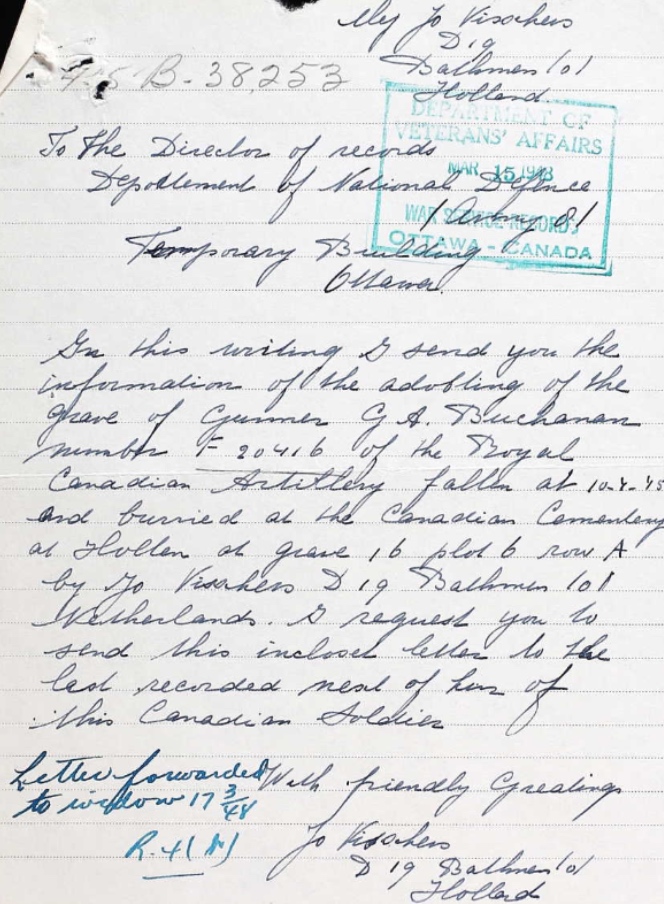 My Jo Visschers
D 19
Bathmen (o)
Holland
B-38,253
DEPARTMENT OF
VETERANS' AFFAIRS
MAR 15 1948
WAR SERVICE RECORDS
OTTAWA - CANADA
To the Director of records
Depottement of National Defence
Temporary Building
Ottawa.
In this writing I send you the
information of the adobting of the
grave of Gunner G A. Buchanan
number F 20416 of the Royal
Canadian Artillery fallen at 10-4-45
and burried at the Canadian Cementery
at Holten at grave 16 plot 6 row A
by Jo Visschers D 19 Bathmen (o)
Netherlands. I request you to
send this incloset letter to the
last recorded next of kin of
this Canadian Soldier
With friendly Greatings
Jo Visschers
D 19 Bathmen (o)
Holland
Letter forwarded
to widow 17 3/48